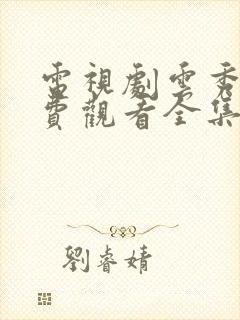 電視劇雲秀
費觀看全集
劉睿婧